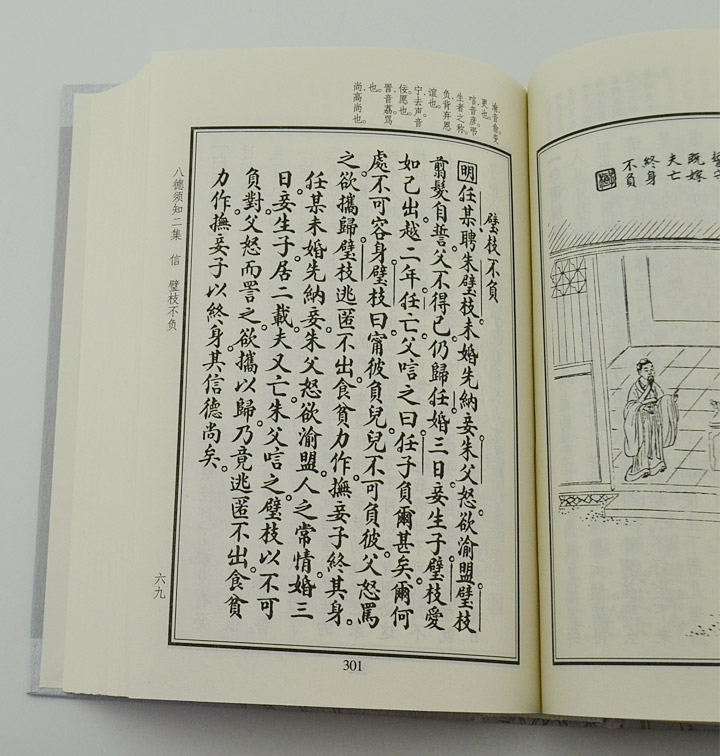 既嫁
夫亡
終身
不負
渝.音俞.变
更也。
唁.音彦.弔
生者之称。
负.背弃恩
谊也。
宁.去声.音
佞.愿也。
詈.音荔.骂
也。
尚.高尚也。
璧枝不負
明任某聘朱璧枝。未婚先納妾。朱父怒。欲渝盟。璧枝
翦髮自誓。父不得已。仍歸任。婚三日。妾生子。璧枝愛
如己出。越二年。任亡。父唁之曰。任子負爾甚矣。爾何
處不可容身。璧枝曰。甯彼負兒。兒不可負彼。父怒罵
之。欲攜歸。璧枝逃匿不出。食貧力作。撫妾子終其身。
任某未婚先納妾。朱父怒欲渝盟。人之常情。婚三
日。妾生子。居二載。夫又亡。朱父唁之。璧枝以不可
負對。父怒而詈之。欲攜以歸。乃竟逃匿不出。食貧
力作。撫妾子以終身。其信德尚矣。
八德须知二集 信 璧枝不负
六九
301